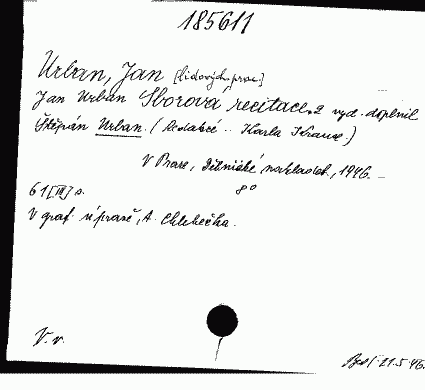 185611
Urban, Jan [lidových prac.]
Jan Urban Sborová recitace. 2 vyd. doplnil
Štěpán Urban. (Redakcí .. Karla Krause.)
V Praze, Dělnické nakladat., 1946. _
61 [III] s. 8°
V graf. úpravě A. Chlebečka.
V. v. 21.5.46.